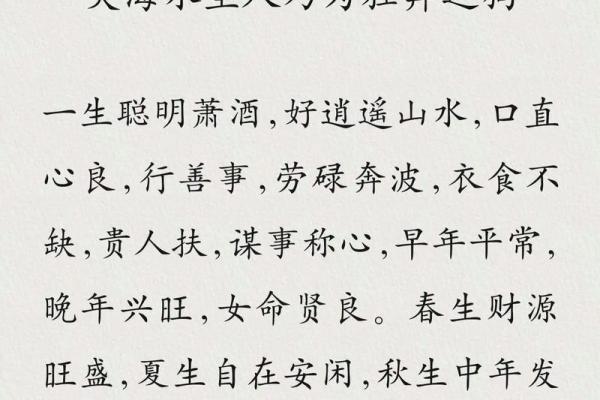 一生聪明萧酒,好逍遥山水,口直
心良,行善事,劳碌奔波,衣食不
缺,贵人扶,谋事称心,早年平常,
晚年兴旺,女命贤良。春生财源
旺盛,夏生自在安闲,秋生中年发